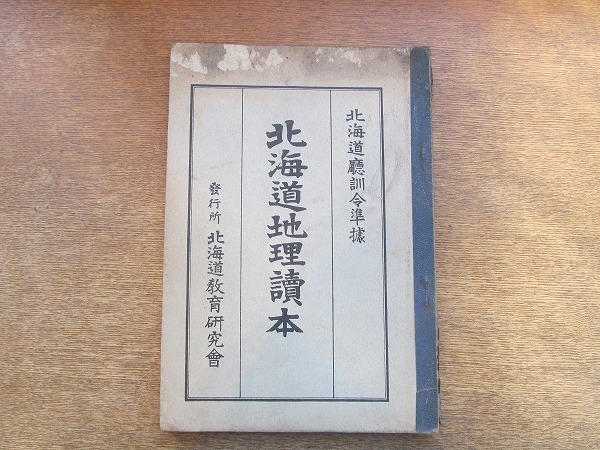 北海道廳訓令準據
北海道地理讀本
發行所 北海道敎育硏究會